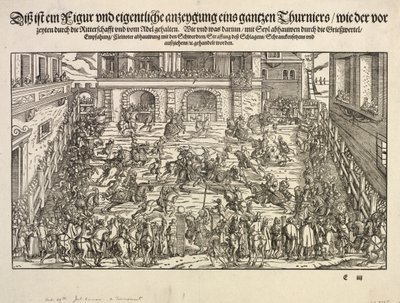 Diß ist ein Figur vnd eigentliche anzeygung eins gantzen Thurniers / wie der vor
zeyten durch die Ritterschafft vnd vom Adel gehalten. Wie vnd was darinn / mit Seyl abhauwen durch die Grießwertel /
Empfahung / Kleinoter abhauwung mit den Schwerdten / Straffung deß Schlagens / Schranckensetzens vnd
außziehens / gehandelt worden.
E iiij